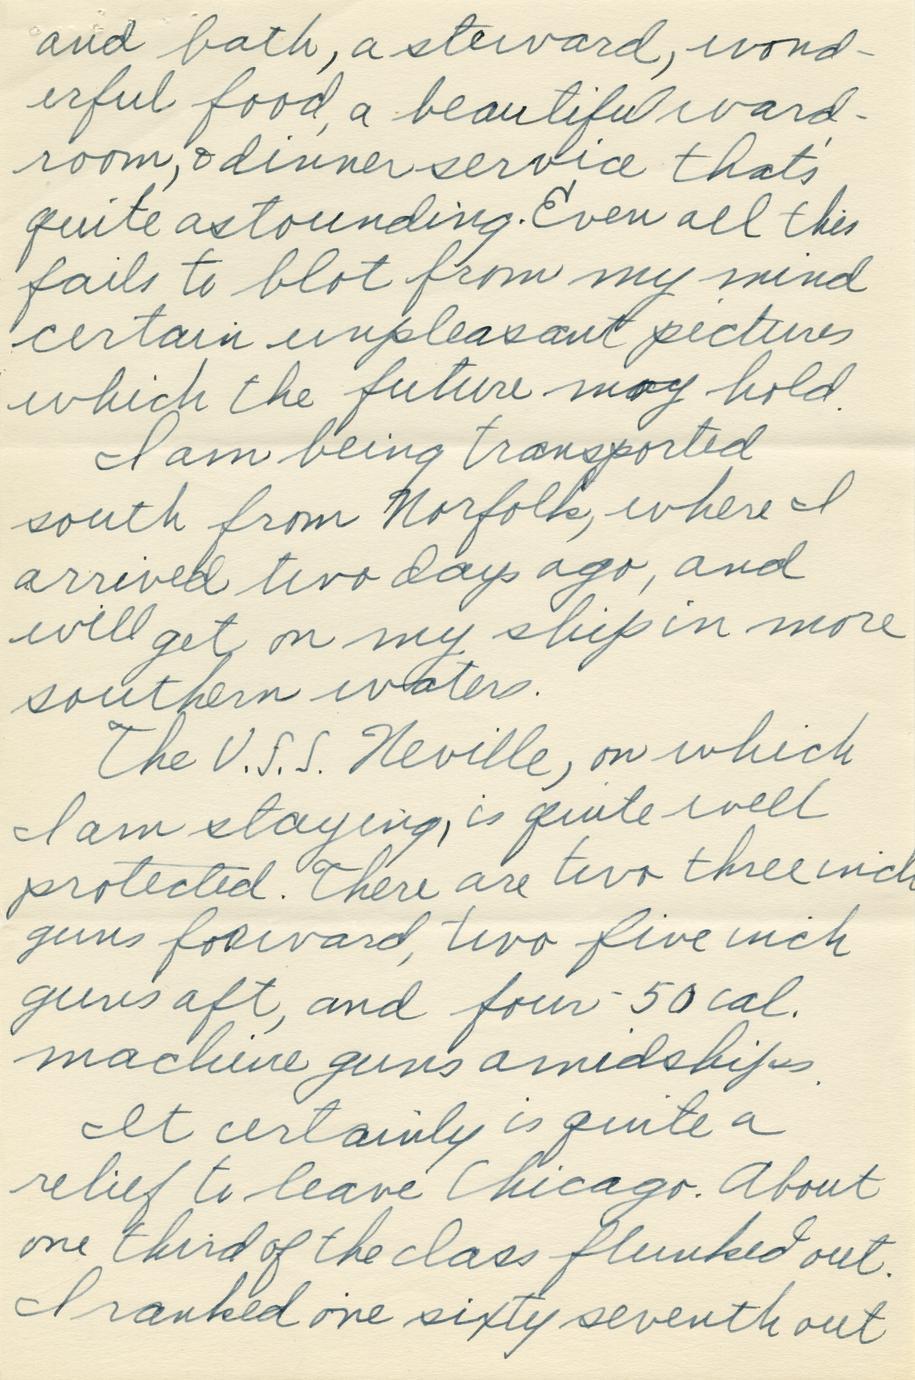 and bath, a steward, wond-
erful food, a beautiful ward-
room, & dinner service that's
quite astounding. Even all this
fails to blot from my mind
certain unpleasant pictures
which the future may hold.
I am being transported
south from Norfolk, where I
arrived two days ago, and
will get on my ship in more
southern waters.
The U.S.S. Neville, on which
I am staying, is quite well
protected. There are two three inch
guns forward, two five inch
guns aft, and four - 50 cal.
machine guns amidships.
It certainly is quite a
relief to leave Chicago. About
one third of the class flunked out.
I ranked one sixty seventh out